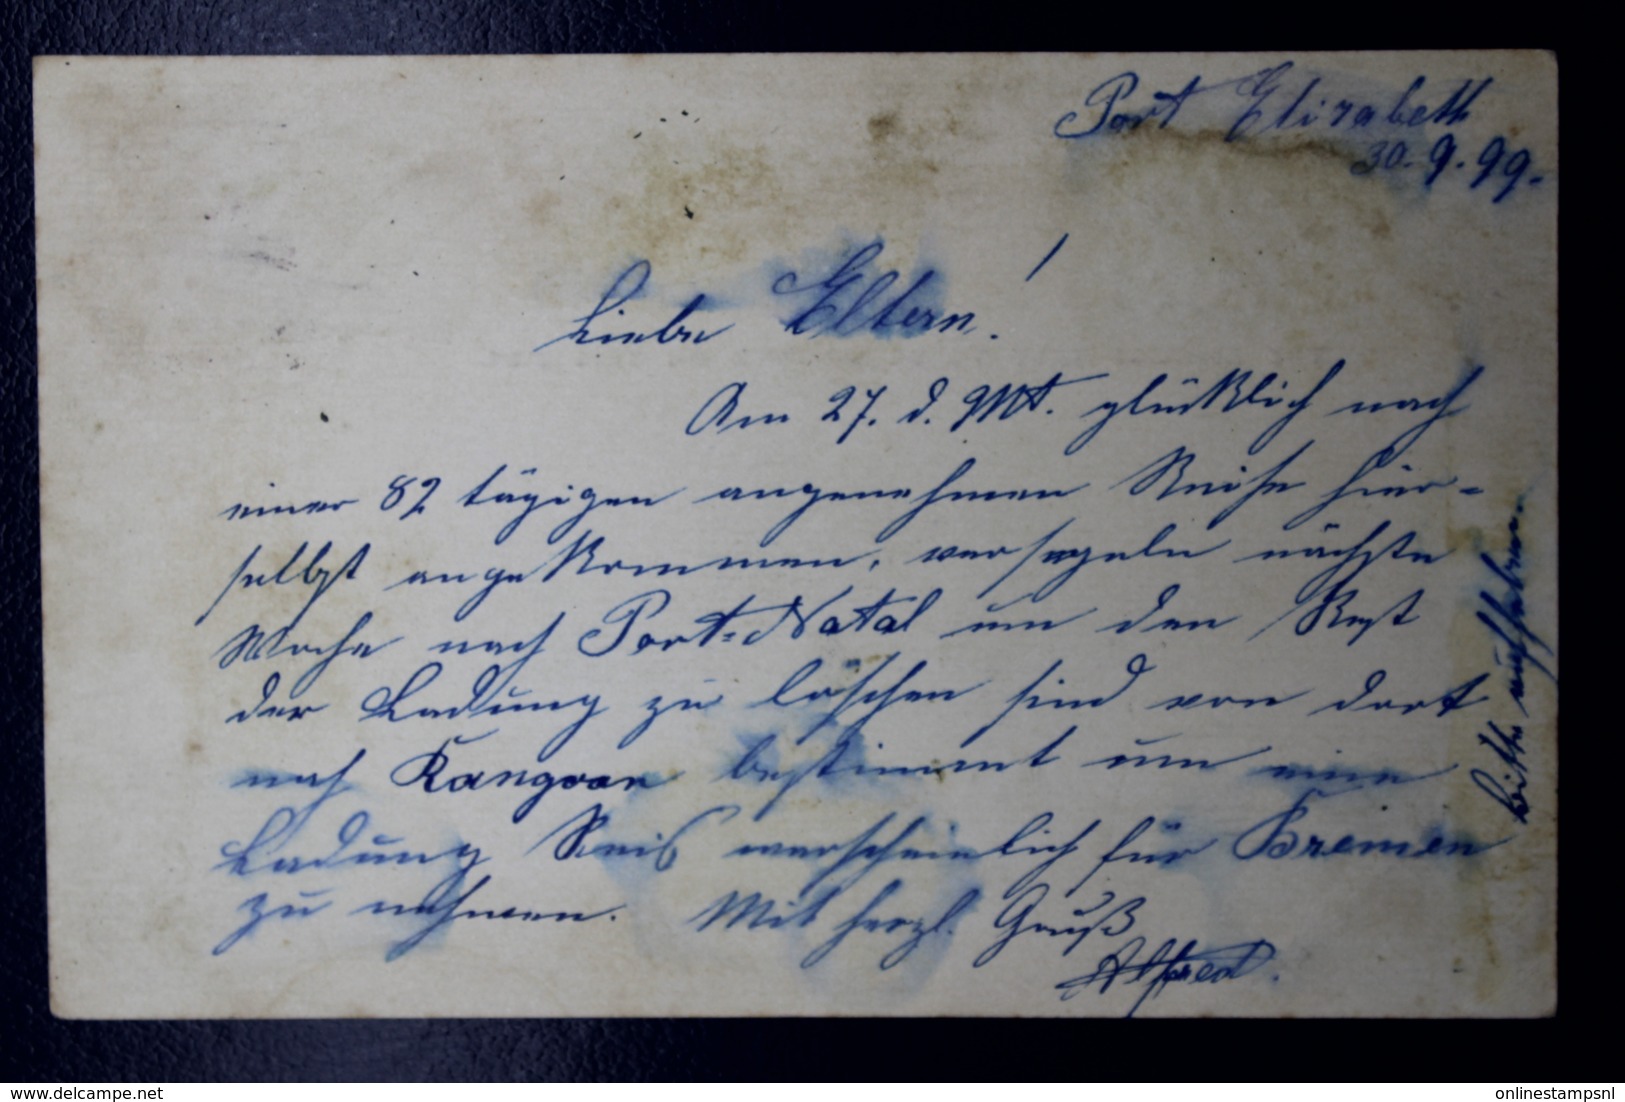 Port Elizabeth
30. 9. 99.
Liebe Eltern!
Am 27. d. Mt. glücklich nach
einer 82 tägigen angenehmen Reise hier-
selbst angekommen, versegeln nächste
Woche nach Port-Natal um den Rest
der Ladung zu löschen sind von dort
nach Rangoon bestimmt um eine
Ladung Reis warscheinlich für Bremen
zu nehmen. Mit herzl. Gruß
Alfred.
bitte aufheben.
www.delcampe.net
onlinestampsnl